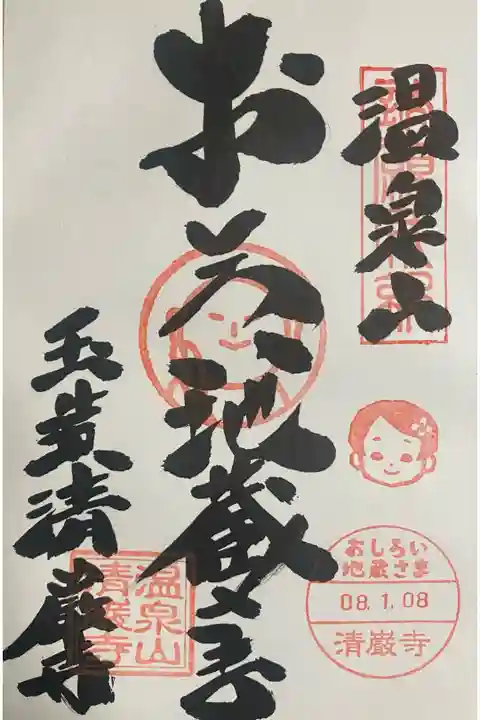 温泉山
お美地蔵尊
玉造清巌寺
おしろい
地蔵さま
08.1.08
清巌寺
温泉山
清巌寺